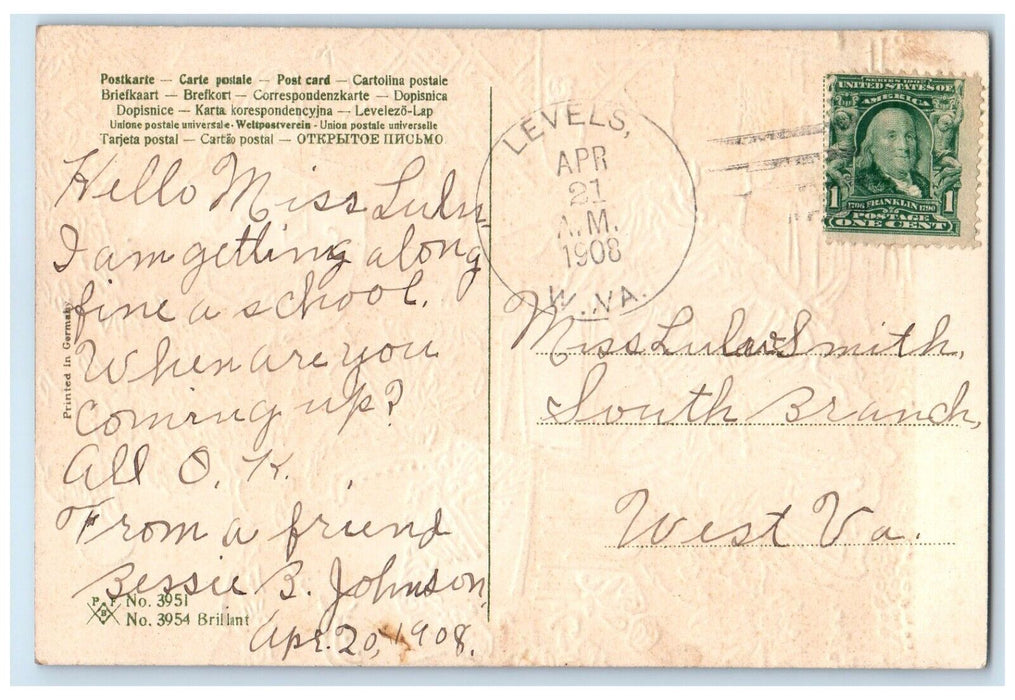 Postkarte — Carte postale — Post card — Cartolina postale
Briefkaart — Brefkort — Correspondenzkarte — Dopisnica
Dopisnice — Karta korespondencyjna — Levelező-Lap
Unione postale universale - Weltpostverein - Union postale universelle
Tarjeta postal — Cartão postal — ОТКРЫТОЕ ПИСЬМО
Hello Miss Lulu
I am getting along
fine a school.
When are you
coming up?
All O. K.
From a friend
Bessie B. Johnson,
Apr. 20, 1908.
Printed in Germany
P F B
No. 3951
No. 3954 Brillant
LEVELS,
APR
21
A.M.
1908
W. VA.
SERIES 1902
UNITED STATES OF
AMERICA
1 1706 FRANKLIN 1790 1
POSTAGE
ONE CENT
Miss Lula Smith,
South Branch,
West Va.